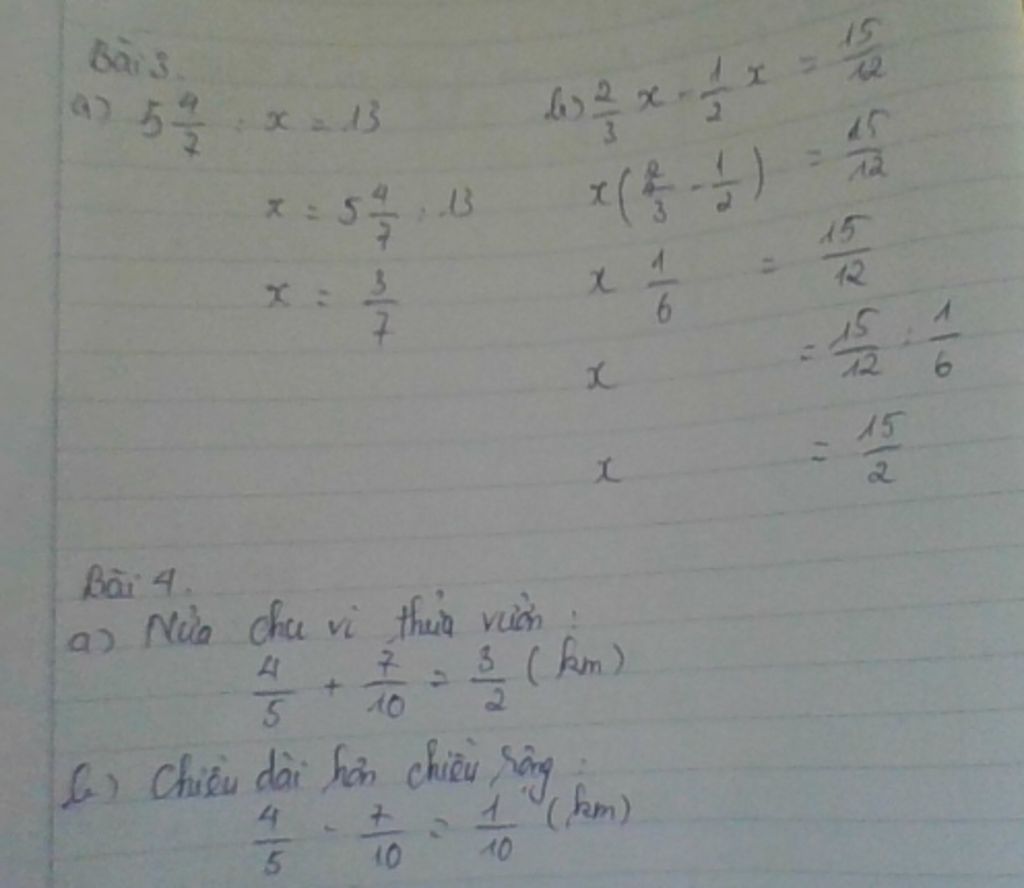 Bài 3.
a) 5 4/7 : x = 13
x = 5 4/7 : 13
x = 3/7
b) 2/3 x - 1/2 x = 15/12
x (2/3 - 1/2) = 15/12
x 1/6 = 15/12
x = 15/12 : 1/6
x = 15/2
Bài 4.
a) Nửa chu vi thửa vườn :
4/5 + 7/10 = 3/2 (km)
b) Chiều dài hơn chiều rộng :
4/5 - 7/10 = 1/10 (km)